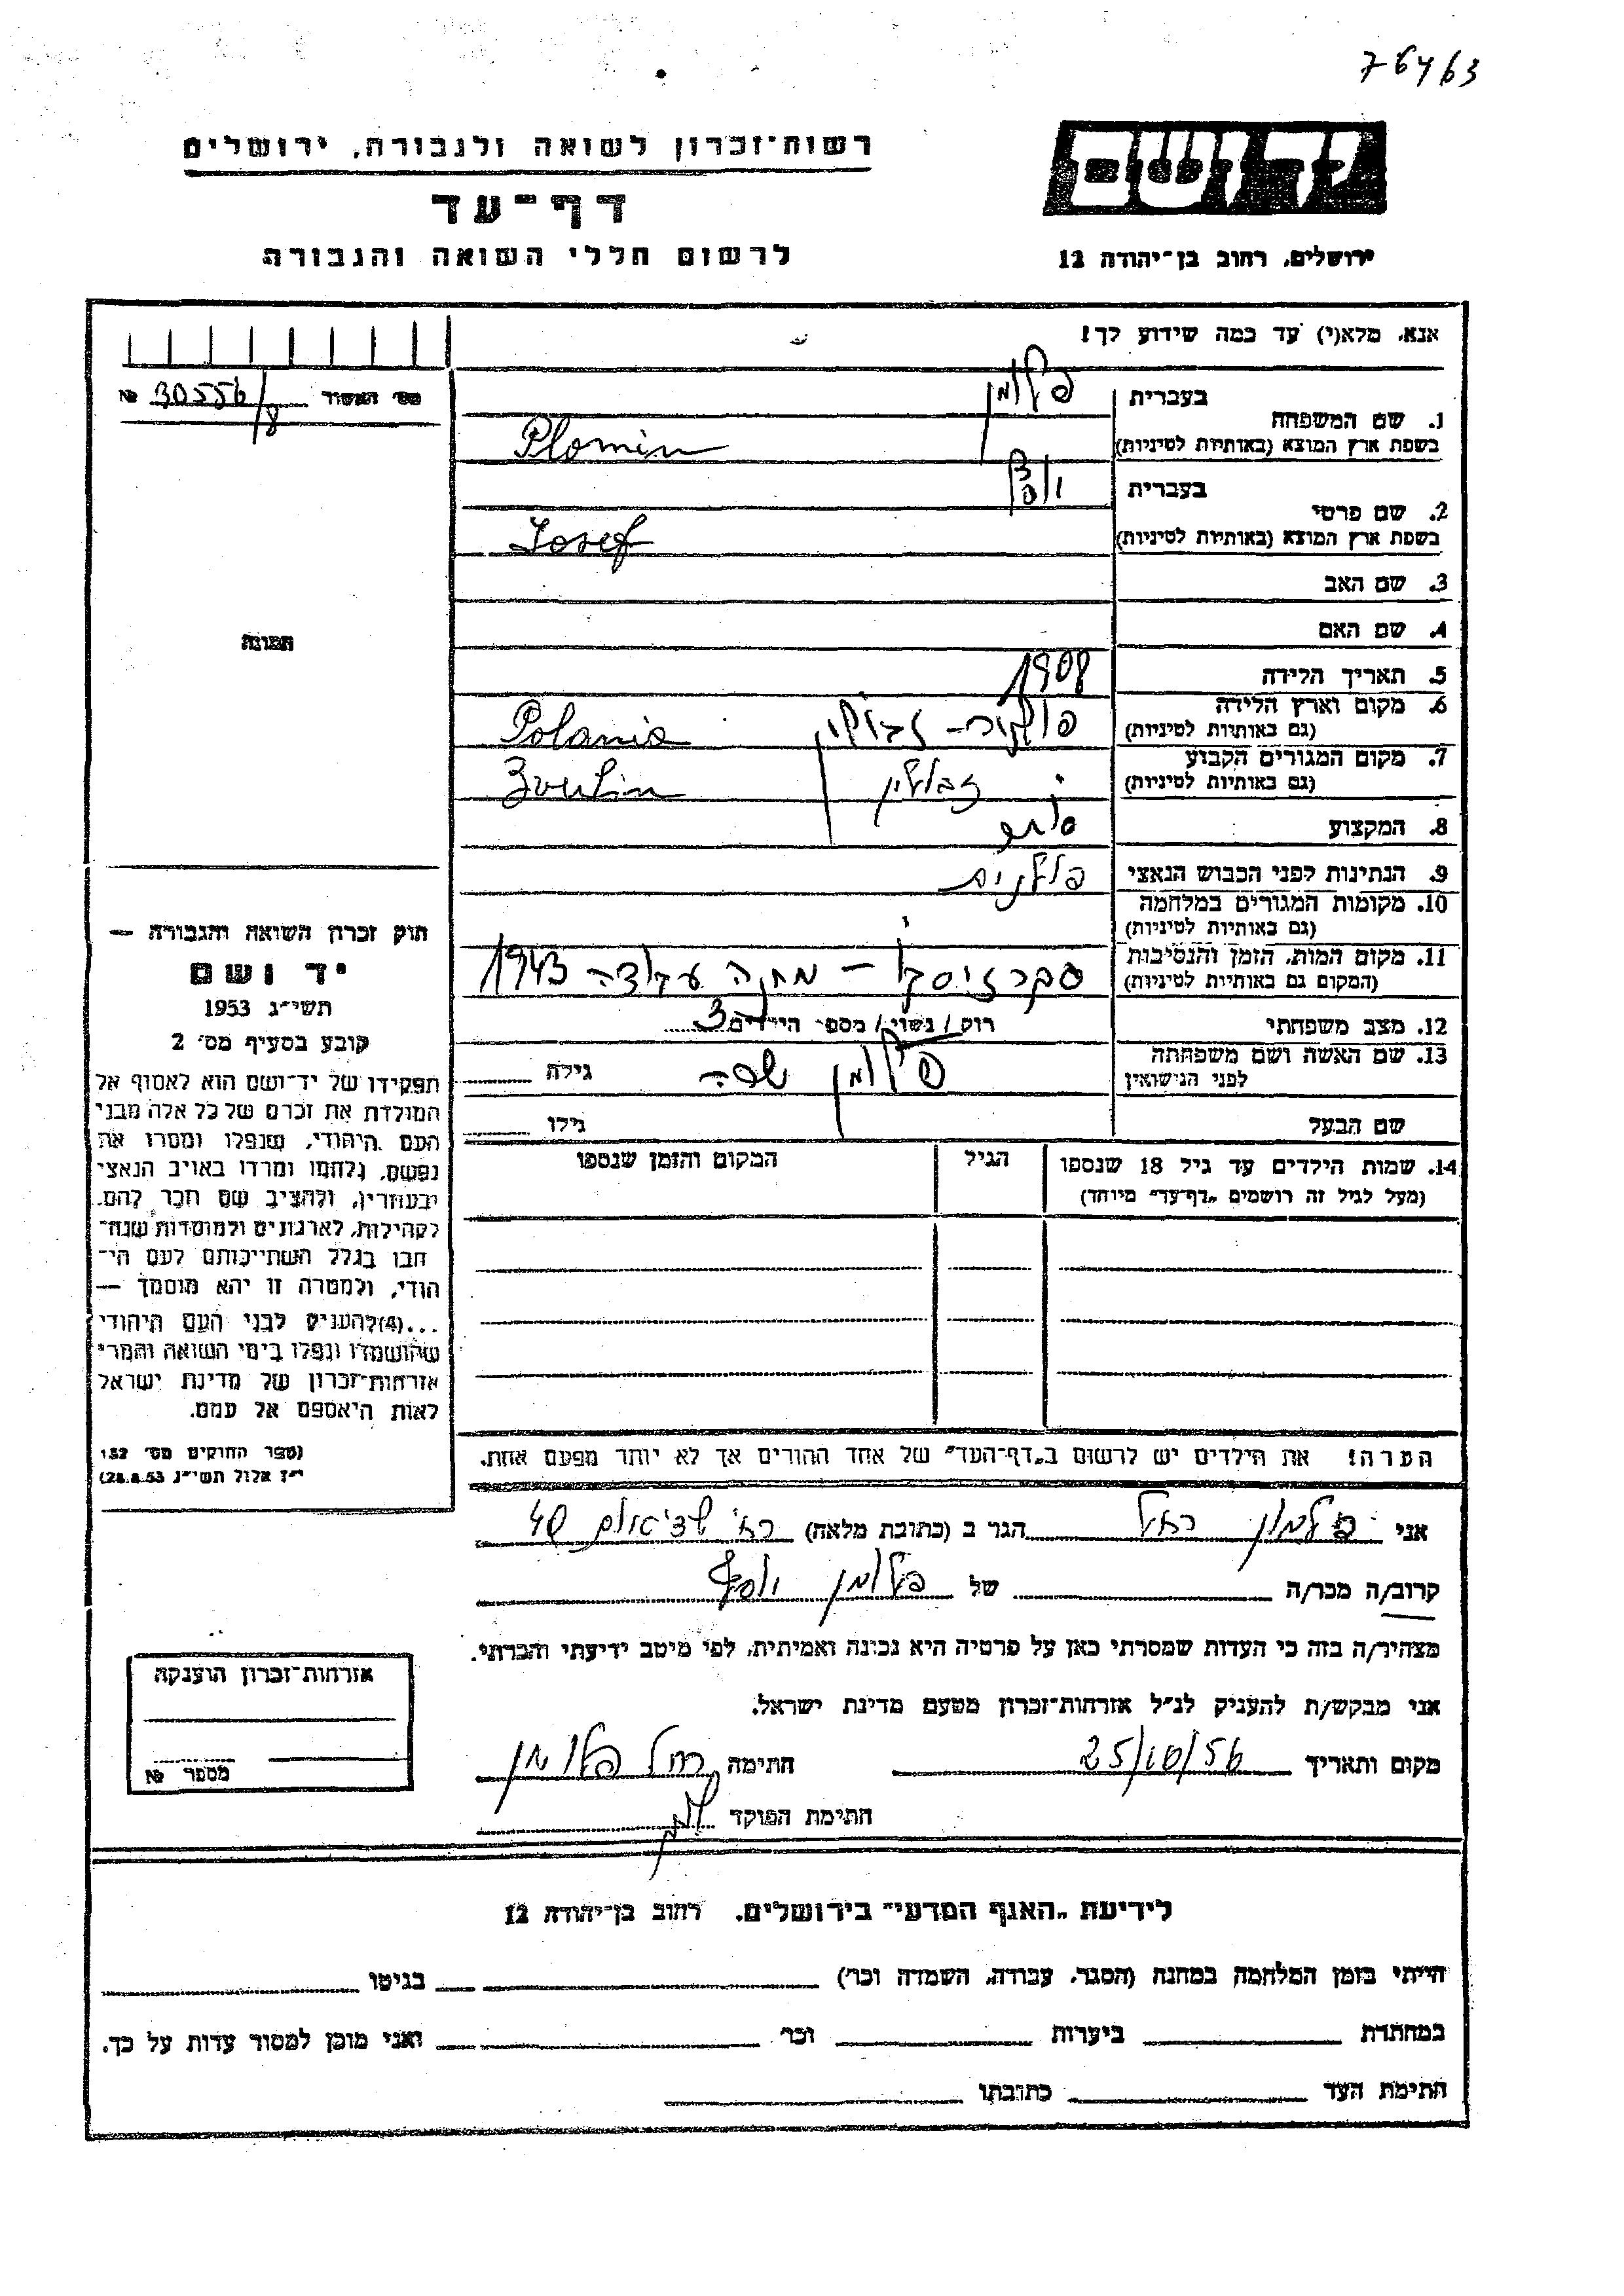 76463
יד ושם
ירושלים, רחוב בן־יהודה 12
רשות־זכרון לשואה ולגבורה, ירושלים
דף־עד
לרשום חללי השואה והגבורה
אנא, מלא(י) עד כמה שידוע לך!
מס׳ האשור 30556/8 №
1. שם המשפחה
בעברית פלומין
בשפת ארץ המוצא (באותיות לטיניות) Plomin
2. שם פרטי
בעברית יוסף
בשפת ארץ המוצא (באותיות לטיניות) Josef
3. שם האב
4. שם האם
5. תאריך הלידה 1908
6. מקום וארץ הלידה
(גם באותיות לטיניות) Polania
7. מקום המגורים הקבוע
(גם באותיות לטיניות)
8. המקצוע סוחר
9. הנתינות לפני הכבוש הנאצי פולנית
10. מקומות המגורים במלחמה
(גם באותיות לטיניות)
11. מקום המות, הזמן והנסיבות
(המקום גם באותיות לטיניות) – מחנה עבודה 1943
12. מצב משפחתי רווק / נשוי / מספר הילדים 3
13. שם האשה ושם משפחתה
לפני הנישואין גילה
שם הבעל גילו
14. שמות הילדים עד גיל 18 שנספו הגיל המקום והזמן שנספו
(מעל לגיל זה רושמים „דף־עד״ מיוחד)
הערה! את הילדים יש לרשום ב„דף־העד״ של אחד ההורים אך לא יותר מפעם אחת.
תמונה
חוק זכרון השואה והגבורה —
יד ושם
תשי״ג 1953
קובע בסעיף מס׳ 2
תפקידו של יד־ושם הוא לאסוף אל
המולדת את זכרם של כל אלה מבני
העם היהודי, שנפלו ומסרו את
נפשם, נלחמו ומרדו באויב הנאצי
ובעוזריו, ולהציב שם וזכר להם,
לקהילות, לארגונים ולמוסדות שנח־
רבו בגלל השתייכותם לעם הי־
הודי, ולמטרה זו יהא מוסמך —
...(4) להעניק לבני העם היהודי
שהושמדו ונפלו בימי השואה והמרי
אזרחות־זכרון של מדינת ישראל
לאות היאספם אל עמם.
(ספר החוקים מס׳ 132
י״ז אלול תשי״ג 28.8.53)
אני פלומין רחל הגר ב (כתובת מלאה)
קרוב/ה מכר/ה של פלומין יוסף
מצהיר/ה בזה כי העדות שמסרתי כאן על פרטיה היא נכונה ואמיתית, לפי מיטב ידיעתי והכרתי.
אני מבקש/ת להעניק לנ״ל אזרחות־זכרון מטעם מדינת ישראל.
מקום ותאריך 25/10/56 חתימה רחל פלומין
חתימת הפוקד
אזרחות־זכרון הוענקה
מספר №
לידיעת „האגף המדעי״ בירושלים, רחוב בן־יהודה 12
הייתי בזמן המלחמה במחנה (הסגר, עבודה, השמדה וכו׳) בגיטו
במחתרת ביערות וכו׳ ואני מוכן למסור עדות על כך.
חתימת העד כתובתו